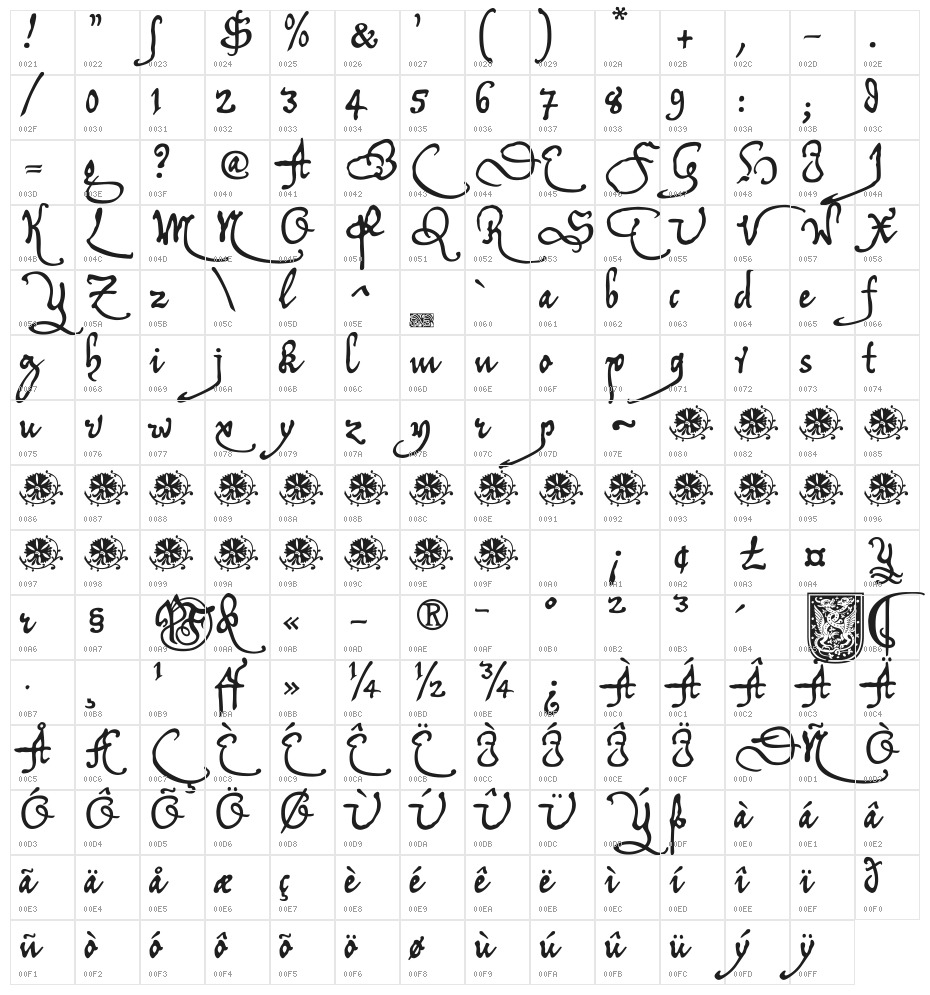 ! " ʃ $ % & ' ( ) * + , - .
0021 0022 0023 0024 0025 0026 0027 0028 0029 002A 002B 002C 002D 002E
/ 0 1 2 3 4 5 6 7 8 9 : ;
002F 0030 0031 0032 0033 0034 0035 0036 0037 0038 0039 003A 003B 003C
= ? @ A B C D E F G H I J
003D 003E 003F 0040 0041 0042 0043 0044 0045 0046 0047 0048 0049 004A
K L M N O P Q R S T U V W X
004B 004C 004D 004E 004F 0050 0051 0052 0053 0054 0055 0056 0057 0058
Y Z z \ l ^ ` a b c d e f
0059 005A 005B 005C 005D 005E 0060 0061 0062 0063 0064 0065 0066
g h i j k l m n o p q r s t
0067 0068 0069 006A 006B 006C 006D 006E 006F 0070 0071 0072 0073 0074
u v w x y z r p ~
0075 0076 0077 0078 0079 007A 007B 007C 007D 007E 0080 0082 0084 0085
0086 0087 0088 0089 008A 008B 008C 008E 0091 0092 0093 0094 0095 0096
¡ ¢ £ ¤ ¥
0097 0098 0099 009A 009B 009C 009E 009F 00A0 00A1 00A2 00A3 00A4 00A5
r § « - ® ¯ ° ² ³ ´ ¶
00A6 00A7 00A9 00AA 00AB 00AD 00AE 00AF 00B0 00B2 00B3 00B4 00B5 00B6
· ¸ ¹ » ¼ ½ ¾ ¿ À Á Â Ã Ä
00B7 00B8 00B9 00BA 00BB 00BC 00BD 00BE 00BF 00C0 00C1 00C2 00C3 00C4
Å Æ Ç È É Ê Ë Ì Í Î Ï Ð Ñ Ò
00C5 00C6 00C7 00C8 00C9 00CA 00CB 00CC 00CD 00CE 00CF 00D0 00D1 00D2
Ó Ô Õ Ö Ø Ù Ú Û Ü Ý ß à á â
00D3 00D4 00D5 00D6 00D8 00D9 00DA 00DB 00DC 00DD 00DF 00E0 00E1 00E2
ã ä å æ ç è é ê ë ì í î ï ð
00E3 00E4 00E5 00E6 00E7 00E8 00E9 00EA 00EB 00EC 00ED 00EE 00EF 00F0
ñ ò ó ô õ ö ø ù ú û ü ý ÿ
00F1 00F2 00F3 00F4 00F5 00F6 00F8 00F9 00FA 00FB 00FC 00FD 00FF